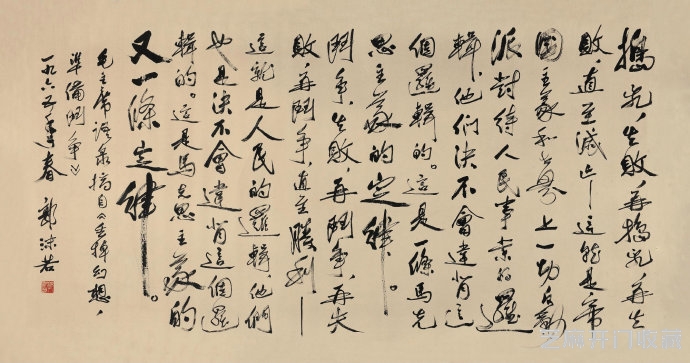 搗乱，失敗，再搗乱，再失
敗，直至滅亡——這就是帝
國主義和世界上一切反動
派對待人民事業的邏
輯，他們決不會違背這
個邏輯的。這是一條馬克
思主義的定律。
鬥争，失敗，再鬥争，再失
敗，再鬥争，直至勝利——
這就是人民的邏輯，他們
也是決不會違背這個邏
輯的。這是馬克思主義的
又一條定律。
毛主席語录摘自《丢掉幻想，
準備鬥争》
一九六五年春 郭沫若
芝麻开门收藏